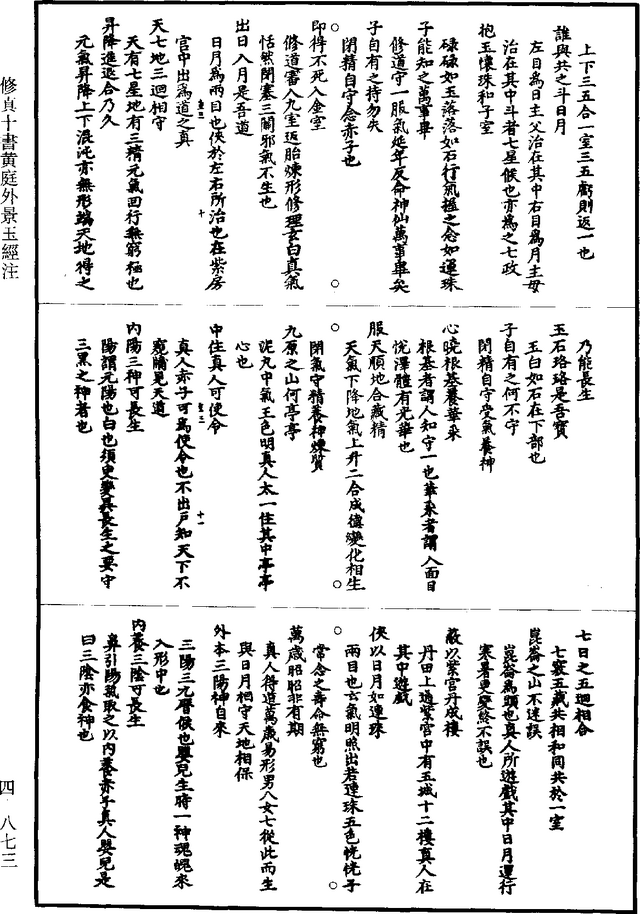 上下三五合一室三五虧則返一也
誰與共之斗日月
左目為日主父治在其中右目為月主母
治在其中斗者七星候也亦為之七政
抱玉懷珠和子室
碌碌如玉落落如石行氣握之念如運珠
子能知之萬事畢
修道守一服氣延年反命神仙萬事畢矣
子自有之持勿失
閉精自守念赤子也
即得不死入金室
修道審入九室返胎煉形修理玄白真氣
恬然閉塞三關邪氣不生也
出日入月是吾道
日月為兩目也俠於左右所治也在紫房
宮中出為道之真
天七地三迴相守
天有七星地有三精元氣回行無窮極也
昇降進退合乃久
元氣昇降上下混沌亦無形端天地得之
乃能長生
玉石珞珞是吾寶
玉白如石在下部也
子自有之何不守
閉精自守受氣養神
心曉根基養華采
根基者謂人知守一也華采者謂人面目
悅澤體有光華也
服天順地合藏精
天氣下降地氣上升二合成德變化相生
閉氣守精養神煉質
九原之山何亭亭
泥丸中氣王色明真人太一住其中亭亭
心也
中住真人可使令
真人赤子可為使令也不出戶知天下不
窺牖見天道
內陽三神可長生
陽謂元陽也白也須臾變異長生之要守
三黑之神者也
七日之五迴相合
七竅五藏共相和同共於一室
崑崙之山不迷誤
崑崙為頭也真人所遊戲其中日月運行
寒暑更變終不誤也
蔽以紫宮丹成樓
丹田上通紫宮中有五城十二樓真人在
其中遊戲
俠以日月如連珠
兩目也玄氣明照出若連珠五色恍恍子
常念之壽命無窮也
萬歲昭昭非有期
真人得道萬歲易形男八女七從此而生
與日月相守天地相保
外本三陽神自來
三陽三元曆候也嬰兒生時一神魂魄來
入形中也
內養三陰可長生
鼻引陽氣取之以內養赤子真人嬰兒是
曰三陰亦食神也
修真十書黃庭外景玉經注
四·八七三